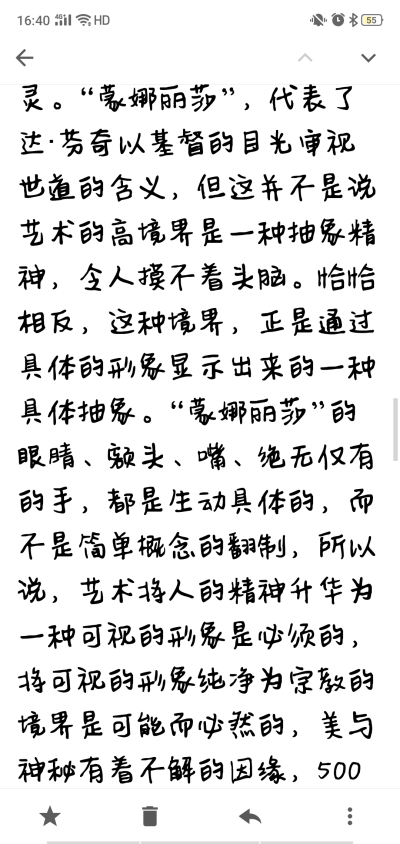 16:40 4G HD 55
灵。“蒙娜丽莎”，代表了
达·芬奇以基督的目光审视
世道的含义，但这并不是说
艺术的高境界是一种抽象精
神，令人摸不着头脑。恰恰
相反，这种境界，正是通过
具体的形象显示出来的一种
具体抽象。“蒙娜丽莎”的
眼睛、额头、嘴、绝无仅有
的手，都是生动具体的，而
不是简单概念的翻制，所以
说，艺术将人的精神升华为
一种可视的形象是必须的，
将可视的形象纯净为宗教的
境界是可能而必然的，美与
神秘有着不解的因缘，500